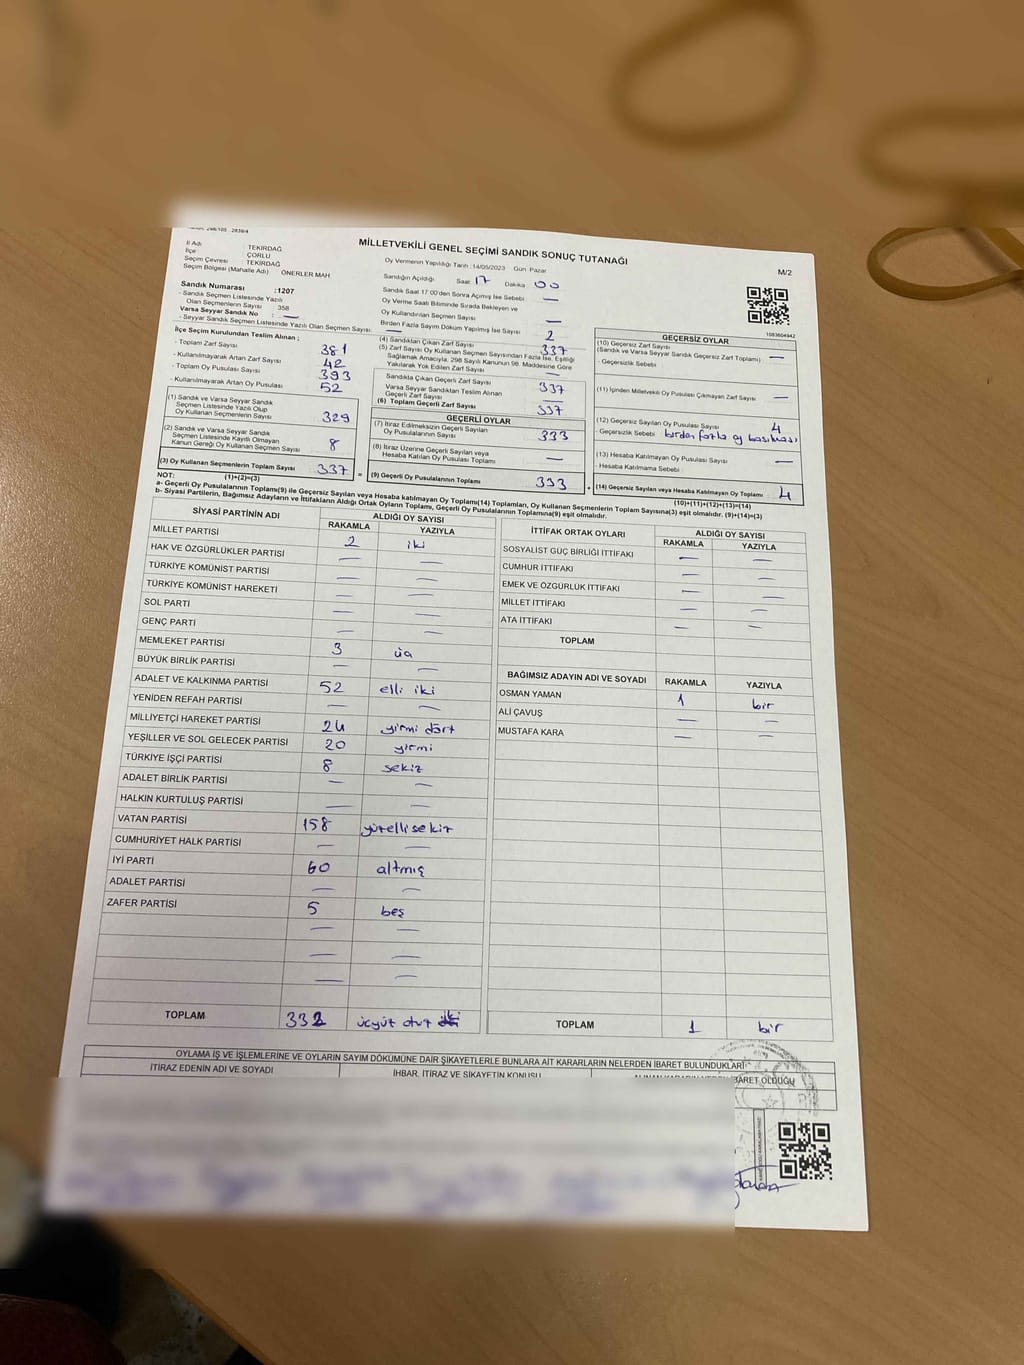 MİLLETVEKİLİ GENEL SEÇİMİ SANDIK SONUÇ TUTANAĞI
M/2
İl Adı : TEKİRDAĞ
İlçe : ÇORLU
Seçim Çevresi : TEKİRDAĞ
Seçim Bölgesi (Mahalle Adı) ÖNERLER MAH
Sandık Numarası :1207
- Sandık Seçmen Listesinde Yazılı
Olan Seçmenlerin Sayısı : 358
Varsa Seyyar Sandık No : —
- Seyyar Sandık Seçmen Listesinde Yazılı Olan Seçmen Sayısı: —
Oy Vermenin Yapıldığı Tarih :14/05/2023 Gün :Pazar
Sandığın Açıldığı Saat: 17 Dakika: 00
Sandık Saat 17:00'den Sonra Açılmış İse Sebebi —
Oy Verme Saati Bitiminde Sırada Bekleyen ve
Oy Kullandırılan Seçmen Sayısı —
Birden Fazla Sayım Döküm Yapılmış İse Sayısı 2
1083604942
İlçe Seçim Kurulundan Teslim Alınan ;
- Toplam Zarf Sayısı 381
- Kullanılmayarak Artan Zarf Sayısı 42
- Toplam Oy Pusulası Sayısı 393
- Kullanılmayarak Artan Oy Pusulası 52
(1) Sandık ve Varsa Seyyar Sandık
Seçmen Listesinde Yazılı Olup
Oy Kullanan Seçmenlerin Sayısı 329
(2) Sandık ve Varsa Seyyar Sandık
Seçmen Listesinde Kayıtlı Olmayan
Kanun Gereği Oy Kullanan Seçmen Sayısı 8
(3) Oy Kullanan Seçmenlerin Toplam Sayısı 337
(1)+(2)=(3)
(4) Sandıktan Çıkan Zarf Sayısı 337
(5) Zarf Sayısı Oy Kullanan Seçmen Sayısından Fazla İse, Eşitliği
Sağlamak Amacıyla, 298 Sayılı Kanunun 98. Maddesine Göre
Yakılarak Yok Edilen Zarf Sayısı —
Sandıkta Çıkan Geçerli Zarf Sayısı 337
Varsa Seyyar Sandıktan Teslim Alınan
Geçerli Zarf Sayısı —
(6) Toplam Geçerli Zarf Sayısı 337
GEÇERLİ OYLAR
(7) İtiraz Edilmeksizin Geçerli Sayılan
Oy Pusulalarının Sayısı 333
(8) İtiraz Üzerine Geçerli Sayılan veya
Hesaba Katılan Oy Pusulası Toplamı —
= (9) Geçerli Oy Pusulalarının Toplamı 333
GEÇERSİZ OYLAR
(10) Geçersiz Zarf Sayısı
(Sandık ve Varsa Seyyar Sandık Geçersiz Zarf Toplamı) —
- Geçersizlik Sebebi :
(11) İçinden Milletvekili Oy Pusulası Çıkmayan Zarf Sayısı —
(12) Geçersiz Sayılan Oy Pusulası Sayısı 4
- Geçersizlik Sebebi : birden fazla oy basılması
(13) Hesaba Katılmayan Oy Pusulası Sayısı —
- Hesaba Katılmama Sebebi :
+ (14) Geçersiz Sayılan veya Hesaba Katılmayan Oy Toplamı 4
(10)+(11)+(12)+(13)=(14)
NOT:
a- Geçerli Oy Pusulalarının Toplamı(9) ile Geçersiz Sayılan veya Hesaba katılmayan Oy Toplamı(14) Toplamları, Oy Kullanan Seçmenlerin Toplam Sayısına(3) eşit olmalıdır. (9)+(14)=(3)
b- Siyasi Partilerin, Bağımsız Adayların ve İttifakların Aldığı Ortak Oyların Toplamı, Geçerli Oy Pusulalarının Toplamına(9) eşit olmalıdır.
SİYASİ PARTİNİN ADI ALDIĞI OY SAYISI
RAKAMLA YAZIYLA
MİLLET PARTİSİ 2 iki
HAK VE ÖZGÜRLÜKLER PARTİSİ — —
TÜRKİYE KOMÜNİST PARTİSİ — —
TÜRKİYE KOMÜNİST HAREKETİ — —
SOL PARTİ — —
GENÇ PARTİ — —
MEMLEKET PARTİSİ 3 üç
BÜYÜK BİRLİK PARTİSİ — —
ADALET VE KALKINMA PARTİSİ 52 elli iki
YENİDEN REFAH PARTİSİ — —
MİLLİYETÇİ HAREKET PARTİSİ 24 yirmi dört
YEŞİLLER VE SOL GELECEK PARTİSİ 20 yirmi
TÜRKİYE İŞÇİ PARTİSİ 8 sekiz
ADALET BİRLİK PARTİSİ — —
HALKIN KURTULUŞ PARTİSİ — —
VATAN PARTİSİ 158 yüzellisekiz
CUMHURİYET HALK PARTİSİ — —
İYİ PARTİ 60 altmış
ADALET PARTİSİ — —
ZAFER PARTİSİ 5 beş
— —
— —
— —
TOPLAM 332 üçyüz otuz iki
İTTİFAK ORTAK OYLARI ALDIĞI OY SAYISI
RAKAMLA YAZIYLA
SOSYALİST GÜÇ BİRLİĞİ İTTİFAKI — —
CUMHUR İTTİFAKI — —
EMEK VE ÖZGÜRLÜK İTTİFAKI — —
MİLLET İTTİFAKI — —
ATA İTTİFAKI — —
TOPLAM
BAĞIMSIZ ADAYIN ADI VE SOYADI RAKAMLA YAZIYLA
OSMAN YAMAN 1 bir
ALİ ÇAVUŞ — —
MUSTAFA KARA — —
TOPLAM 1 bir
OYLAMA İŞ VE İŞLEMLERİNE VE OYLARIN SAYIM DÖKÜMÜNE DAİR ŞİKAYETLERLE BUNLARA AİT KARARLARIN NELERDEN İBARET BULUNDUKLARI
İTİRAZ EDENİN ADI VE SOYADI
İHBAR, İTİRAZ VE ŞİKAYETİN KONUSU
İBARET OLDUĞU